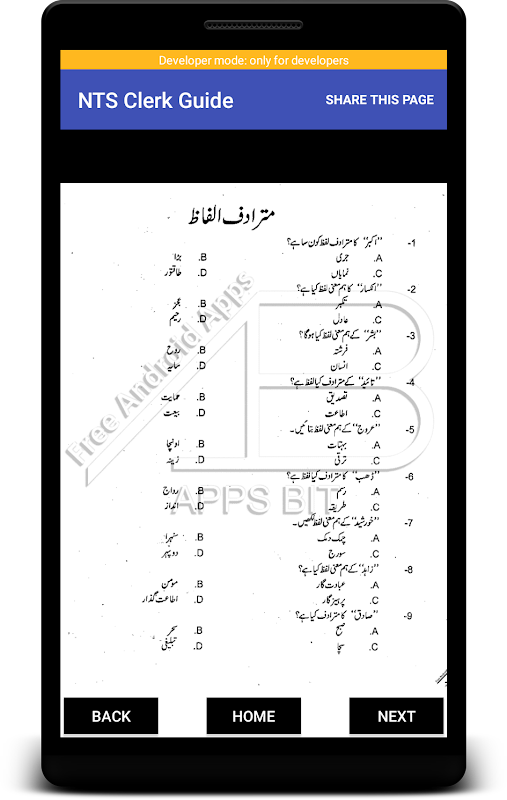 Developer mode: only for developers
NTS Clerk Guide SHARE THIS PAGE
مترادف الفاظ
-1 "اکبر" کا مترادف لفظ کون سا ہے؟
A. جری B. بڑا
C. نمایاں D. طاقتور
-2 "انکسار" کا ہم معنی لفظ کیا ہے؟
A. تکبر B. عجز
C. عادل D. رحیم
-3 "بشر" کے ہم معنی لفظ کیا ہوگا؟
A. فرشتہ B. روح
C. انسان D. سایہ
-4 "تائید" کے مترادف کیا لفظ ہے؟
A. تصدیق B. حمایت
C. اطاعت D. بیعت
-5 "عروج" کے ہم معنی لفظ بتائیں۔
A. بہتات B. اونچا
C. ترقی D. زینہ
-6 "ڈھب" کا مترادف کیا لفظ ہے؟
A. رسم B. رواج
C. طریقہ D. انداز
-7 "خورشید" کے ہم معنی لفظ لکھیں۔
A. چمک دمک B. سنہرا
C. سورج D. دوپہر
-8 "زاہد" کے ہم معنی لفظ کیا ہے؟
A. عبادت گار B. مومن
C. پرہیزگار D. اطاعت گذار
-9 "صادق" کا مترادف کیا ہے؟
A. صبح B. سحر
C. سچا D. تبلیغی
Free Android Apps
AB
APPS BIT
BACK HOME NEXT